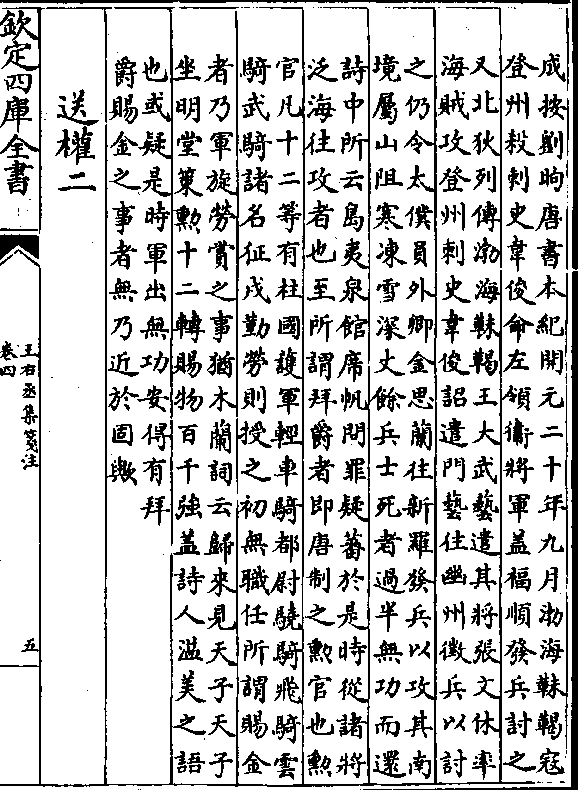 成按劉昫唐書本紀開元二十年九月渤海靺鞨寇
登州殺刺史韋俊命左領衛將軍盖福順發兵討之
又北狄列傳渤海靺鞨王大武藝遣其將張文休率
海賊攻登州刺史韋俊詔遣門藝往幽州徵兵以討
之仍令太僕員外卿金思蘭往新羅發兵以攻其南
境屬山阻寒凍雪深丈餘兵士死者過半無功而還
詩中所云島夷泉館席帆問罪疑蕃於是時從諸將
泛海往攻者也至所謂拜爵者即唐制之勲官也勲
官凡十二等有柱國護軍輕車騎都尉驍騎飛騎雲
騎武騎諸名征戍勤勞則授之初無職任所謂賜金
者乃軍旋勞賞之事猶木蘭詞云歸來見天子天子
坐明堂策勲十二轉賜物百千強盖詩人溢美之語
也或疑是時軍出無功安得有拜
爵賜金之事者無乃近於固歟
送權二
欽定四庫全書
王右丞集箋注
卷四
五